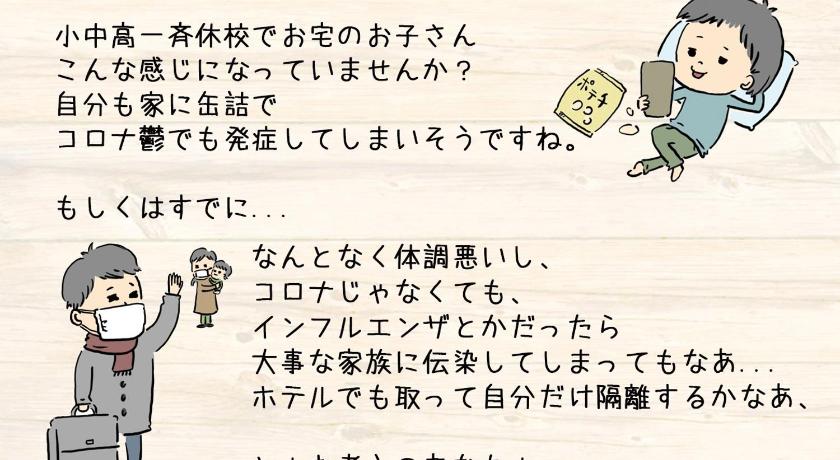 小中高一斉休校でお宅のお子さん
こんな感じになっていませんか？
自分も家に缶詰で
コロナ鬱でも発症してしまいそうですね。
ポテチ
もしくはすでに...
なんとなく体調悪いし、
コロナじゃなくても、
インフルエンザとかだったら
大事な家族に伝染してしまってもなあ...
ホテルでも取って自分だけ隔離するかなあ、